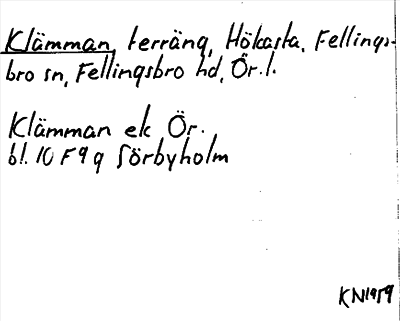 Klämman, terräng, Hökasta, Fellings-
bro sn, Fellingsbro hd, Ör. l.
Klämman ek Ör.
bl. 10 F 9 g Sörbyholm
KN 1959